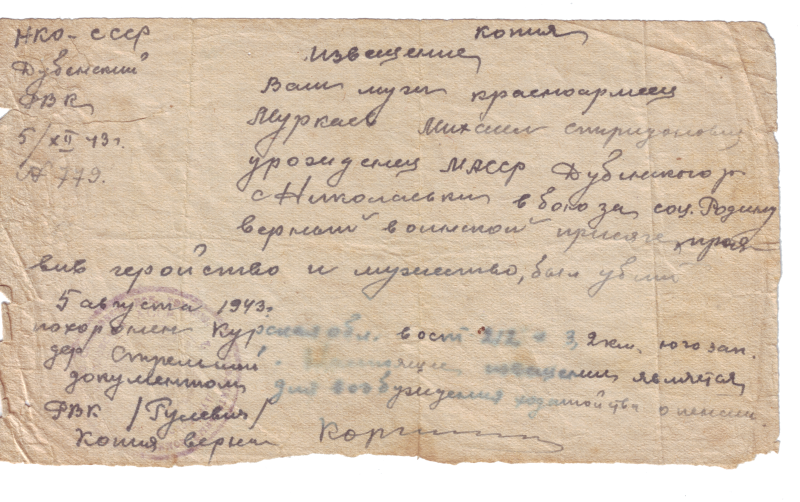 НКО-СССР
Дубенский
РВК
5/XII 43г.
№ 779.
копия
извещение
Ваш муж красноармеец
Муркаев Михаил Спиридонович
уроженец МАССР Дубенского р
с Николаевки в бою за соц. Родину
верный воинской присяге, прояв
вив геройство и мужество, был убит
5 августа 1943г.
похоронен Курская обл. вост 212 + 3, 2км. юго зап.
дер Стрельный. Настоящие извещение является
документом для возбуждения ходатайства о пенсии.
РВК /Гулевич/
Копия верна